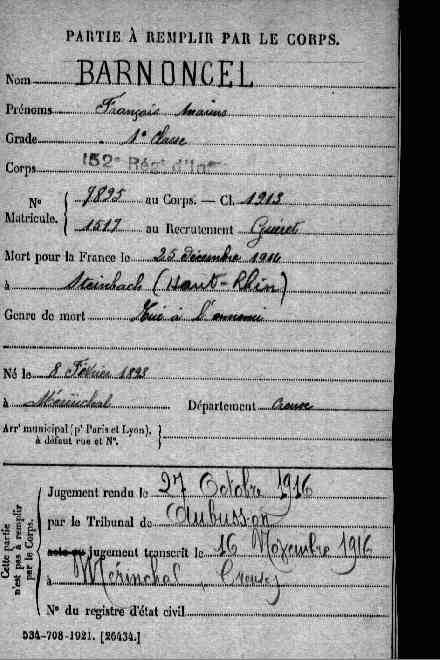 PARTIE À REMPLIR PAR LE CORPS.
Nom BARNONCEL
Prénoms François
Grade 1e classe
Corps 152e Régt d'Inf
N° Matricule. { 7895 au Corps. — Cl. 1913
1517 au Recrutement Guéret
Mort pour la France le 25 décembre 1914
à Steinbach (Haut-Rhin)
Genre de mort Tué à l'ennemi
Né le 8 Février 1893
à Mérinchal Département Creuse
Arrt municipal (pr Paris et Lyon), à défaut rue et N°. }
Cette partie n'est pas à remplir par le Corps.
Jugement rendu le 27 Octobre 1916
par le Tribunal de Aubusson
acte ou jugement transcrit le 16 Novembre 1916
à Mérinchal, Creuse
N° du registre d'état civil
534-708-1921. [26434.]